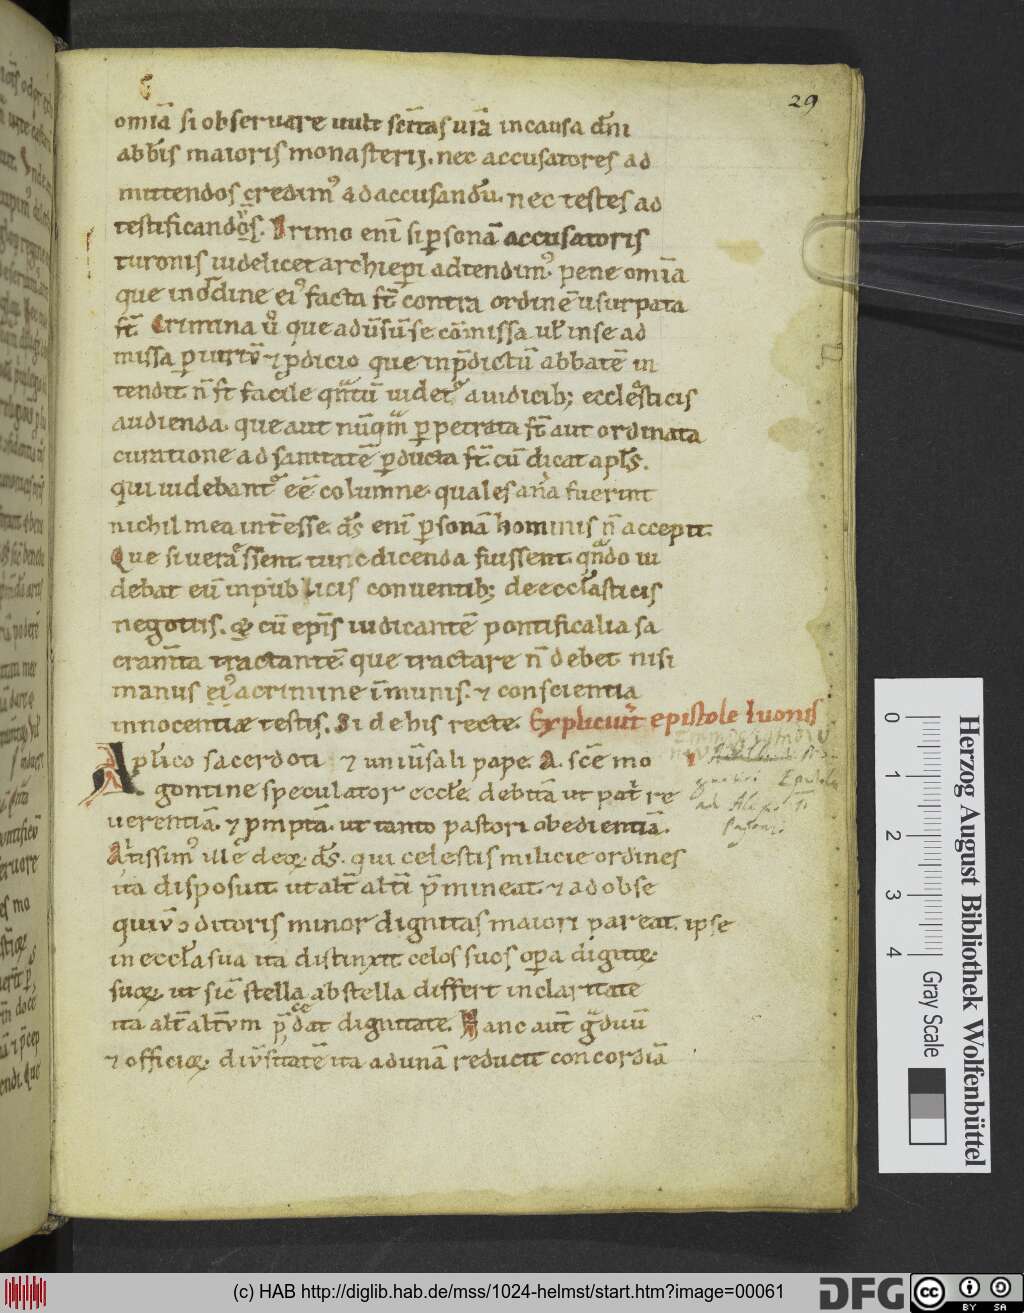 29
omiā si observare uult scītas uīā in causa dn̄i
abbīs maioris monasterij. nec accusatores ad
mittendos credim᾿ ad accusandū. nec testes ad
testificandos. Primo enī si ꝑsonā accusatoris
turonis uidelicet archiepī adtendim᾿. pene omīa
que inordine ei᾿ facta st̄ contra ordinē usurpata
st̄. Crimina ū que aduersū se cōmissa ul̄ in se ad
missa ꝑiuriū ⁊ ꝓdicio que in p̄dictū abbatē in
tendit n̄ st̄ facile qntū uidet᾿ a iudicib; ecclesticis
audienda. que aut nūqm ꝑpetrata st̄ aut ordinata
curatione ad sanitatē ꝑducta st̄. cū dicat apls̄.
qui uidebant᾿ eē columne. quales fuerint
nichil mea int̄esse. ds̄ enī ꝑsonā hominis n̄ accepit.
Que si uera essent. tunc dicenda fuissent. qn̄do ui
debat eū in publicis conuentib; de eccl̄asticis
negotiis. cū epīs iudicantē pontificalia sa
cram̄ta tractantē. que tractare n̄ debet nisi
manus ei᾿ a crimine īmunis. ⁊ conscientia
innocentiæ testis. Si de his recte. Expliciūt epistole Iuonis
Apl̄ico sacerdoti ⁊ uniūsali pape A. sc̄e mo
gontine speculator eccl̄e. debitā ut patri re
uerentiā. ⁊ ꝓmptā. ut tanto pastori obedientiā.
Altissim᾿ ille deoꝝ ds̄. qui celestis milicie ordines
ita disposuit. ut alt̄ alt̄i p̄mineat. ⁊ ad obse
quiū ↄditoris minor dignitas maiori pareat. ipse
in eccl̄a sua ita distinxit celos suos oꝑa digitoꝝ
suoꝝ. ut sic̄ stella ab stella differt in claritate
ita alt̄ alt̄vm p̄cedat dignitate. Hanc aut̄ gͣduū
⁊ officioꝝ diūsitatē ita ad unā reducit concordiā
ad Alex
0 1 2 3 4
Gray Scale
Herzog August Bibliothek Wolfenbüttel
(c) HAB http://diglib.hab.de/mss/1024-helmst/start.htm?image=00061
DFG
cc
BY SA